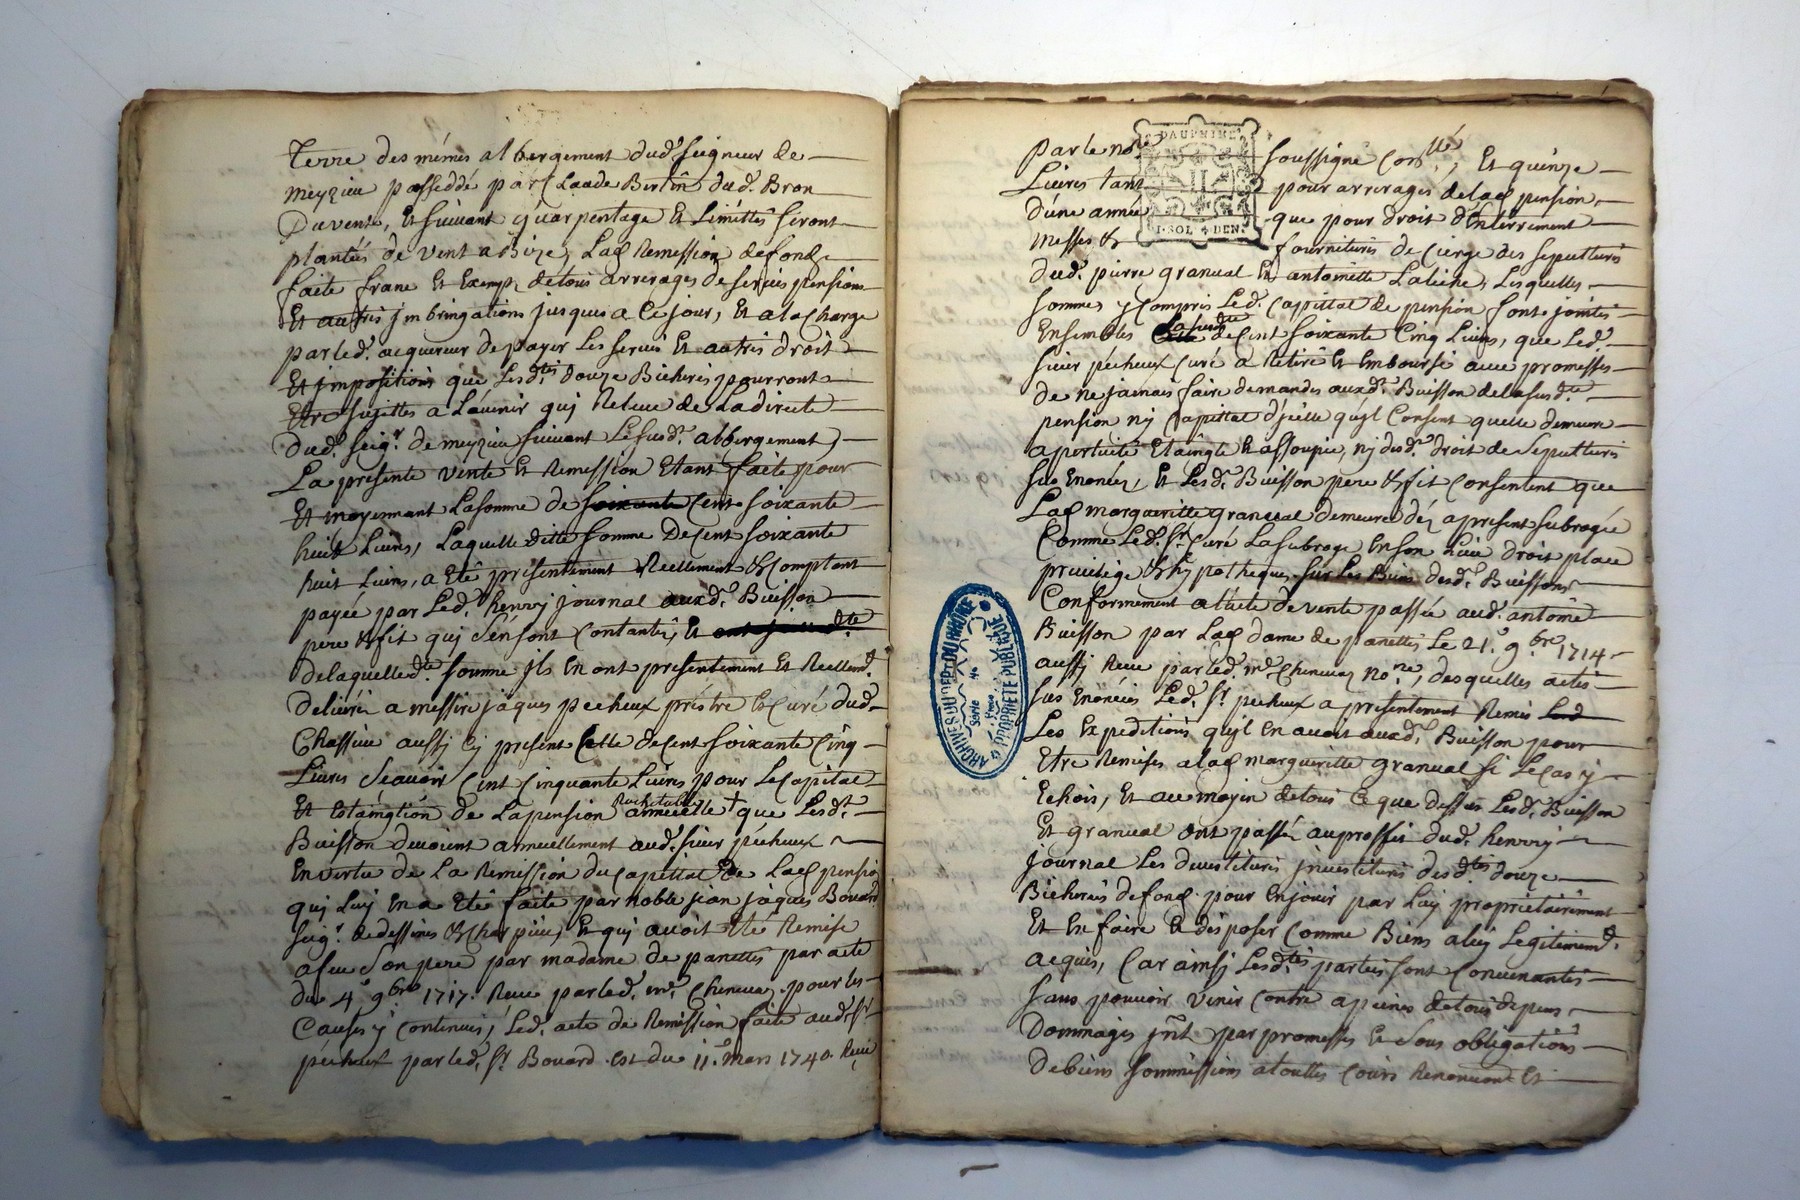 Terre des mémes albergement dud.t seigneur de
meyzieu posseddé par Claude Bertin dud. Bron
Du vent, Et suivant q'uarpentage Et Liméttes seront
plantés de vent a Bize, Lad. Remission de fond
faite franc Et Exemp. de tous arrerages de servis pensions
Et autres jmbringations jusques a Ce jour, Et a la Charge
par led. acquereur de payer Les servis Et autres droit
Et jmpositions que Lesd.tes Douze Bicherés pourront
Etre sujettes a L'avenir quj Releve de La directe
Dud. seig.r de meyzieu suivant Le susd.t albergement,
La présente vente Et Remission Etant faite pour
Et moyennant La somme de soixante Cent soixante
huit Livres, Laquelle ditte somme De Cent soixante
huit Livres, a Eté présentement Reellement & Comptant
payée par Led. henrry journal auxd.t Buisson
pere & fit quj s'en sont Contantés, Et
De laquelle d.te somme jls En ont presentement Et Reellem.t
Delivrés a messire jaques pecheux préstre & Curé dud.
Chassieu aussj Cy present Celle de Cent soixante Cinq
Livres sçavoir Cent Cinquante Livres pour Le Capital
Et Estaingtion de La pension Rachetable annuelle + que Lesd.t
Buisson devoient annuellement aud. sieur pécheux
En vertu de La Remission du Capittal de Lad. pension
quj Luy En a Eté faite par noble jean jaques Bouard
seig.r de dessines & Charpieu, Et quj avoit Eté Remise
a feu son pere par madame de panettes par acte
du 4.e 9bre 1717. Receu par led. m.e Chenevaz pour les
Causes y Contenues, Led. acte de Remission faite aud. s.r
pécheux par led. s.r Bouard est du 11.e mars 1740. Receu
par le no.re soussigné Con.llé, Et quinze
Livres tant pour arrerages de lad. pension,
d'une année que pour droit d'Enterrement
Messes & fournitures de Cierge des sepultures
dud. pierre granual Et antoinette Laliche, Lesquelles
sommes y Compris Led. Capittal de pension sont jointes
Ensembles La susd.te de Cent soixante Cinq Livres, que Led.
sieur pécheux Curé a Retiré Et Emboursé avec promesses
de ne jamais faire demandes auxd.t Buisson de la susd.te
pension nj Capittal d'jcelle qu'jl Consent qu'elle demeure
a pertuité Etaingte & assoupie, nj desd.t droit de sepultures
sus Enoncés, Et Lesd.t Buisson pere & fit Consentent que
Lad. margueritte granual demeure déz a présent subrogée
Comme Led. s.r Curé La subroge En son Lieu droit place
privilége & hypotheques sur Les Biens desd.t Buissons
Conformement a l'acte de vente passée aud. antoine
Buisson par Lad. dame de panettes Le 21.e 9.bre 1714
aussj Receu par led. m.e Chenevaz no.re, desquelles actes
sus Enoncés Led. s.r pecheux a présentement Remis Led
Les Expeditions qu'jl En avoit auxd.t Buisson pour
Etre Remises a lad. margueritte granual si Le Cas y
Echois, Et au moyin de tous Ce que dessus Lesd.t Buisson
Et granual ont passés au proffit dud. henrry
journal Les devestitures jnvestitures desd.tes douze
Bicherés de fond pour En jouir par Luy proprietairement
Et En faire & disposer Comme Biens a luy Legitimem.t
acquis, Car ainsj Lesd.tes parties sont Convenantes
sans pouvoir venir Contre a peines de tous depens
Dommages jn.t par promesses & sous obligations
De biens sommissions a touttes Cours Renonciont Et
DAUPHINÉ
II
I·SOL 4 DEN
ARCHIVES DU DEPT DU RHÔNE
Serie
PROPRIÉTÉ PUBLIQUE